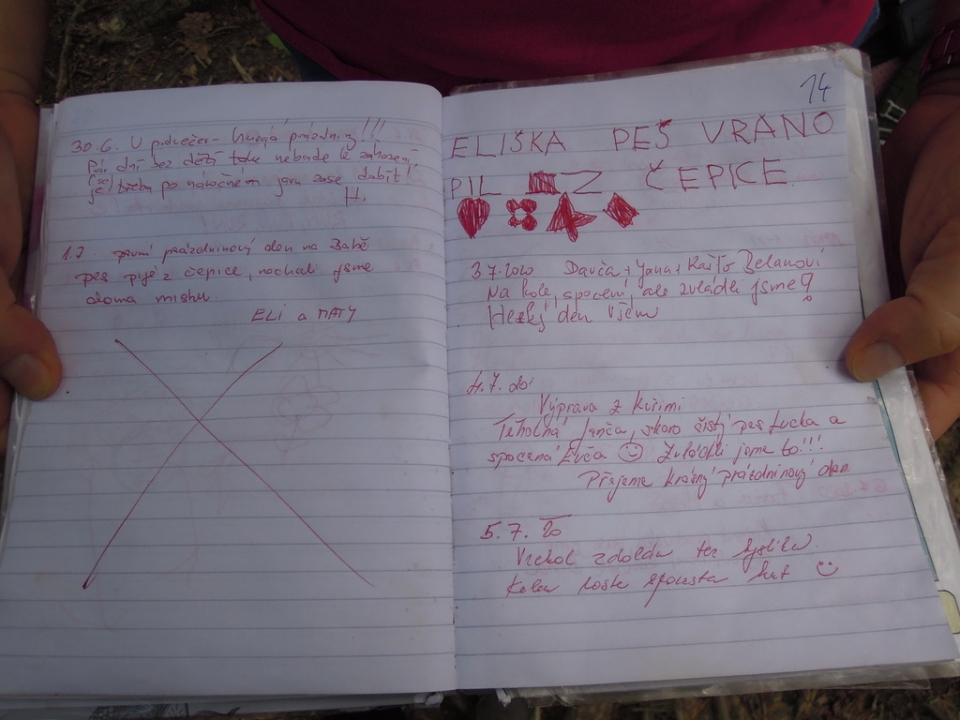 30.6. U podvečer - hurááá prázdniny!!!
Pár dní bez dětí toho nebude k zahození,
(se) je třeba po náročném jaru zase dobít!
H.
1.7. první prázdninový den na Babě
pes pije z čepice, nechali jsme
doma misku.
ELI a MATY
14
ELIŠKA PEŠ VRÁNO
PIL Z ČEPICE
3.7.2020 Davča + Jana + Zelanovi
Na kole, spocení, ale zvládli jsme!
Hezký den všem
4.7. 20
Výprava z Kuřimi
Těhotná Janča, skoro čistý pes Lucka a
spocená Evča Zvládli jsme to!!!
Přejeme krásný prázdninový den
5.7. 20
Vrchol zdoldu
Kolem roste spousta hub